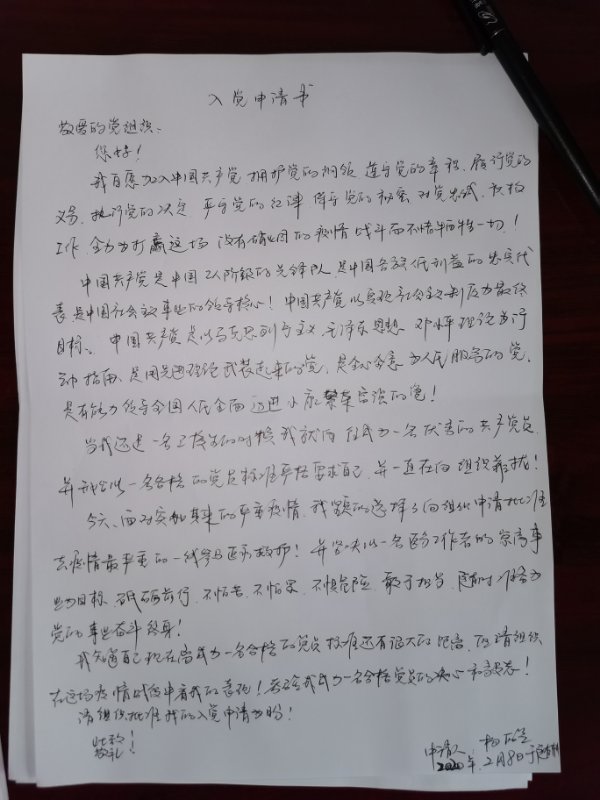 入党申请书
敬爱的党组织、
您好！
我自愿加入中国共产党 拥护党的纲领 遵守党的章程、履行党的
义务、执行党的决定 严守党的纪律 保守党的秘密 对党忠诚、积极
工作 全力为打赢这场没有硝烟的疫情战斗而不惜牺牲一切！
中国共产党是中国工人阶级的先锋队 是中国各族人民利益的忠实代
表 是中国社会主义事业的领导核心！中国共产党以实现社会主义制度为最终
目标。中国共产党是以马克思列宁主义 毛泽东思想 邓小平理论为行
动指南、是用先进理论武装起来的党、是全心全意为人民服务的党、
是有能力领导全国人民全面迈进小康 繁荣富强的党！
当我还是一名 的时候 我就向往成为一名优秀的共产党员
并 以一名合格的党员标准严格要求自己 并一直在向组织靠拢！
今天、面对突如其来的严重疫情、我 的选择了向组织申请批准
去疫情最严重的一线 ！并 以一名医务工作者的崇高事
业为目标 砥砺前行、不怕苦、不怕累、不惧危险 敢于担当、随时准备为
党的事业奋斗终身！
我知道自己现在离成为一名合格的党员标准还有很大的距离、但请组织
在这场疫情战役中看我的表现！ 我成为一名合格党员的决心和
请组织批准我的入党申请为盼！
此致
敬礼！
申请人：杨
2020年2月8日于